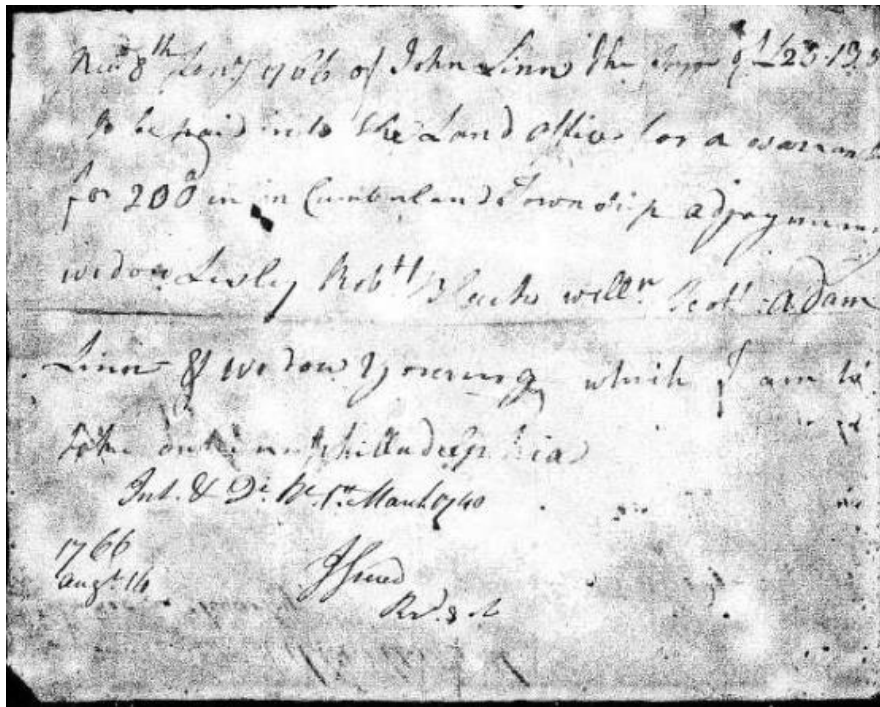 Recd 8th Jany 1766 of John Linn the Sum of £23-13
to be paid into the Land office for a warrant
for 200a in in Cumberland Township adjoyning
widow Lesly Robtt Blacks willm Scott Adam
Linn & widow which I am to
take out in Philladelphia
Int. & Dr. 1st March 1740
1766
Augst. 14